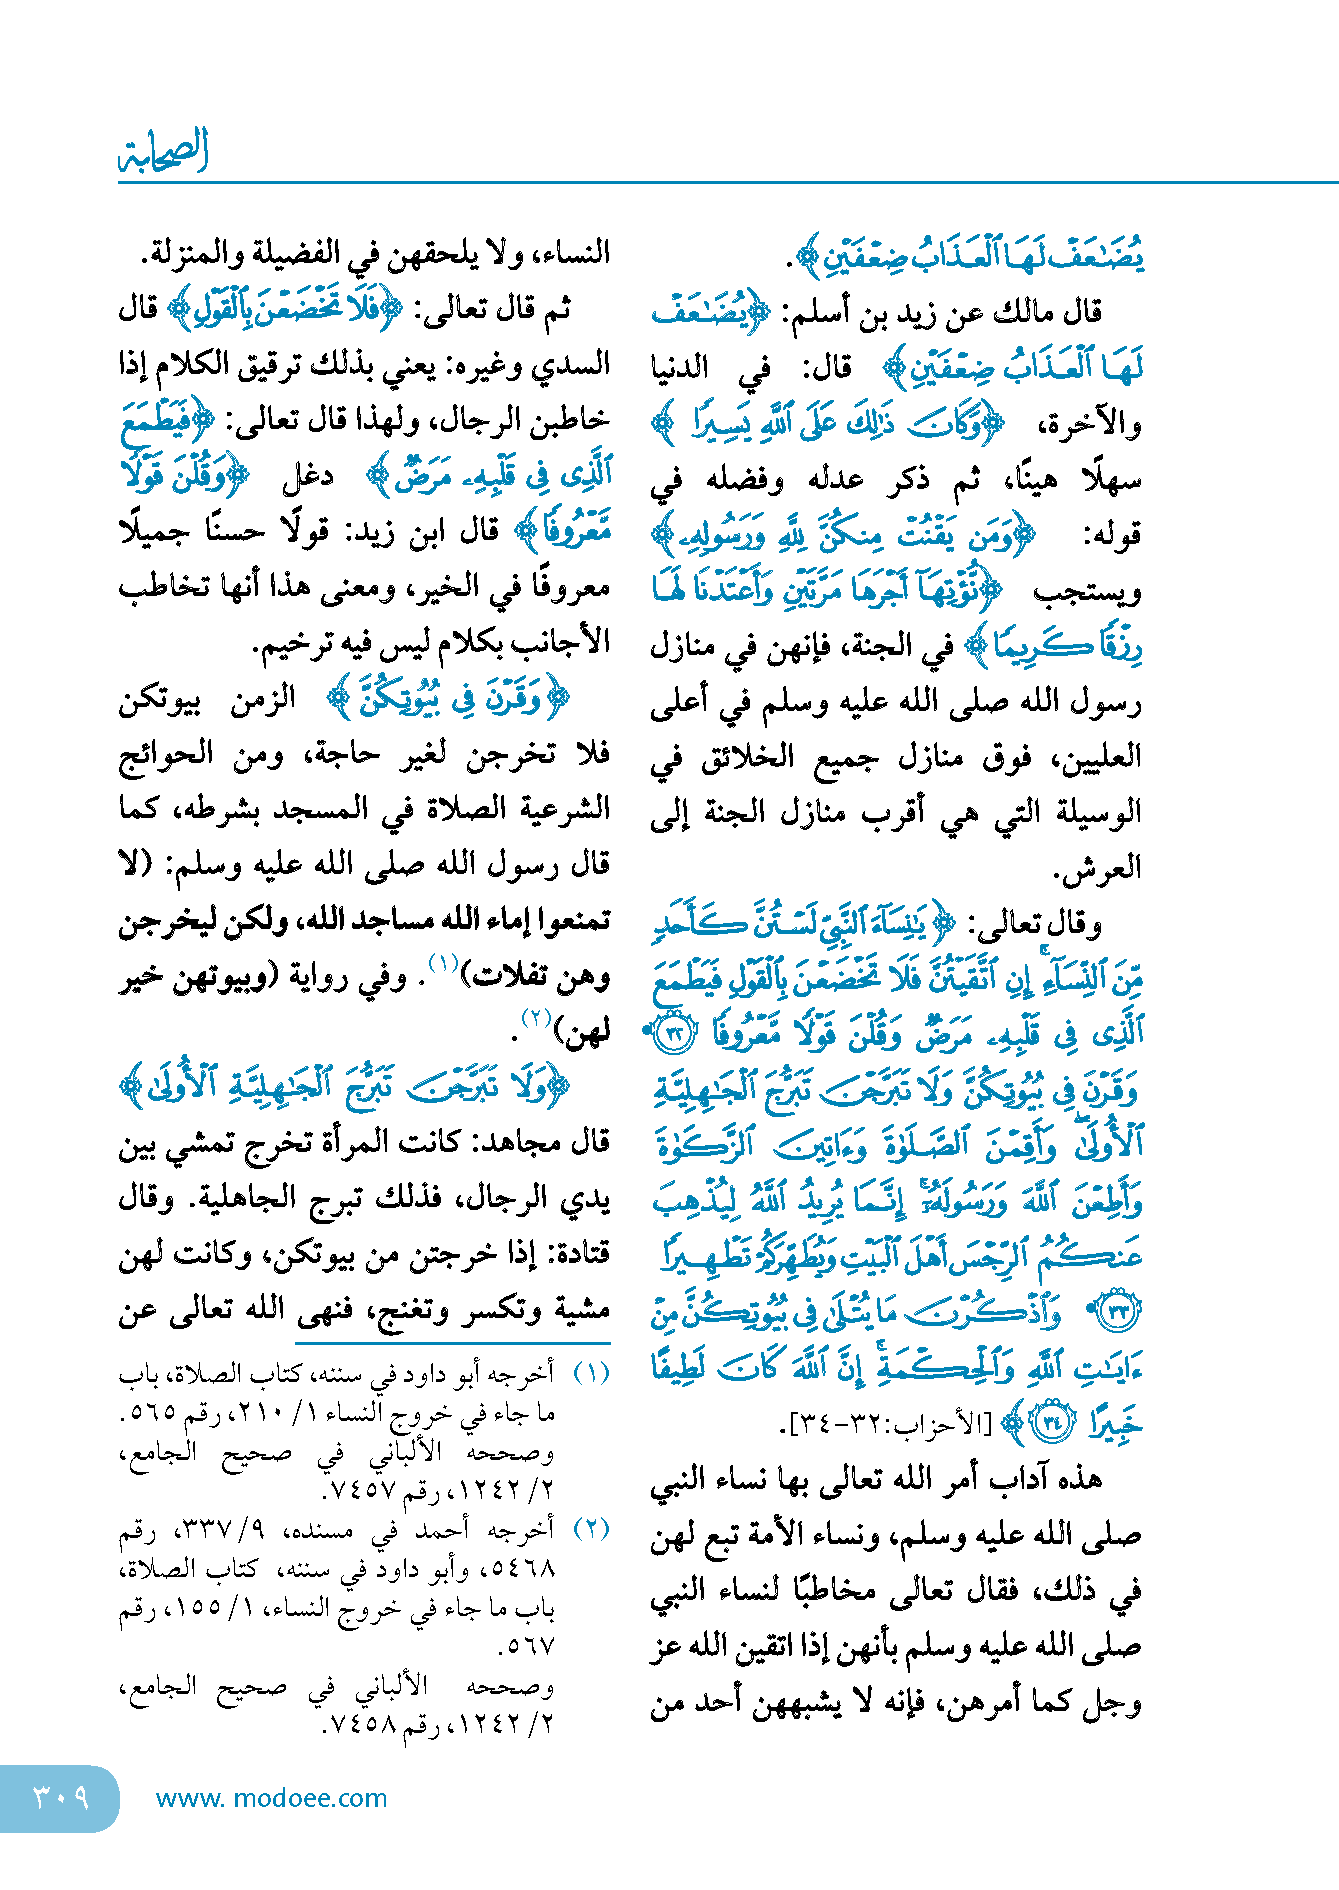 الصحابة
يُضَٰعَفْ لَهَا ٱلْعَذَابُ ضِعْفَيْنِ﴾.
قال مالك عن زيد بن أسلم: ﴿يُضَٰعَفْ
لَهَا ٱلْعَذَابُ ضِعْفَيْنِ﴾ قال: في الدنيا
والآخرة، ﴿وَكَانَ ذَٰلِكَ عَلَى ٱللَّهِ يَسِيرًا﴾
سهلًا هينًا، ثم ذكر عدله وفضله في
قوله: ﴿وَمَن يَقْنُتْ مِنكُنَّ لِلَّهِ وَرَسُولِهِۦ﴾
ويستجب ﴿نُّؤْتِهَآ أَجْرَهَا مَرَّتَيْنِ وَأَعْتَدْنَا لَهَا
رِزْقًا كَرِيمًا﴾ في الجنة، فإنهن في منازل
رسول الله صلى الله عليه وسلم في أعلى
العليين، فوق منازل جميع الخلائق في
الوسيلة التي هي أقرب منازل الجنة إلى
العرش.
وقال تعالى: ﴿يَٰنِسَآءَ ٱلنَّبِىِّ لَسْتُنَّ كَأَحَدٍ
مِّنَ ٱلنِّسَآءِ ۚ إِنِ ٱتَّقَيْتُنَّ فَلَا تَخْضَعْنَ بِٱلْقَوْلِ فَيَطْمَعَ
ٱلَّذِى فِى قَلْبِهِۦ مَرَضٌ وَقُلْنَ قَوْلًا مَّعْرُوفًا ۝٣٢
وَقَرْنَ فِى بُيُوتِكُنَّ وَلَا تَبَرَّجْنَ تَبَرُّجَ ٱلْجَٰهِلِيَّةِ
ٱلْأُولَىٰ ۖ وَأَقِمْنَ ٱلصَّلَوٰةَ وَءَاتِينَ ٱلزَّكَوٰةَ
وَأَطِعْنَ ٱللَّهَ وَرَسُولَهُۥٓ ۚ إِنَّمَا يُرِيدُ ٱللَّهُ لِيُذْهِبَ
عَنكُمُ ٱلرِّجْسَ أَهْلَ ٱلْبَيْتِ وَيُطَهِّرَكُمْ تَطْهِيرًا
۝٣٣ وَٱذْكُرْنَ مَا يُتْلَىٰ فِى بُيُوتِكُنَّ مِنْ
ءَايَٰتِ ٱللَّهِ وَٱلْحِكْمَةِ ۚ إِنَّ ٱللَّهَ كَانَ لَطِيفًا
خَبِيرًا ۝٣٤﴾ [الأحزاب:٣٢-٣٤].
هذه آداب أمر الله تعالى بها نساء النبي
صلى الله عليه وسلم، ونساء الأمة تبع لهن
في ذلك، فقال تعالى مخاطبًا لنساء النبي
صلى الله عليه وسلم بأنهن إذا اتقين الله عز
وجل كما أمرهن، فإنه لا يشبههن أحد من
النساء، ولا يلحقهن في الفضيلة والمنزلة.
ثم قال تعالى: ﴿فَلَا تَخْضَعْنَ بِٱلْقَوْلِ﴾ قال
السدي وغيره: يعني بذلك ترقيق الكلام إذا
خاطبن الرجال، ولهذا قال تعالى: ﴿فَيَطْمَعَ
ٱلَّذِى فِى قَلْبِهِۦ مَرَضٌ﴾ دغل ﴿وَقُلْنَ قَوْلًا
مَّعْرُوفًا﴾ قال ابن زيد: قولًا حسنًا جميلًا
معروفًا في الخير، ومعنى هذا أنها تخاطب
الأجانب بكلام ليس فيه ترخيم.
﴿وَقَرْنَ فِى بُيُوتِكُنَّ﴾ الزمن بيوتكن
فلا تخرجن لغير حاجة، ومن الحوائج
الشرعية الصلاة في المسجد بشرطه، كما
قال رسول الله صلى الله عليه وسلم: (لا
تمنعوا إماء الله مساجد الله، ولكن ليخرجن
وهن تفلات)(١). وفي رواية (وبيوتهن خير
لهن)(٢).
﴿وَلَا تَبَرَّجْنَ تَبَرُّجَ ٱلْجَٰهِلِيَّةِ ٱلْأُولَىٰ﴾
قال مجاهد: كانت المرأة تخرج تمشي بين
يدي الرجال، فذلك تبرج الجاهلية. وقال
قتادة: إذا خرجتن من بيوتكن، وكانت لهن
مشية وتكسر وتغنج، فنهى الله تعالى عن
(١) أخرجه أبو داود في سننه، كتاب الصلاة، باب
ما جاء في خروج النساء ١/ ٢١٠، رقم ٥٦٥.
وصححه الألباني في صحيح الجامع،
٢/ ١٢٤٢، رقم ٧٤٥٧.
(٢) أخرجه أحمد في مسنده، ٩/ ٣٣٧، رقم
٥٤٦٨، وأبو داود في سننه، كتاب الصلاة،
باب ما جاء في خروج النساء، ١/ ١٥٥، رقم
٥٦٧.
وصححه الألباني في صحيح الجامع،
٢/ ١٢٤٢، رقم ٧٤٥٨.
٣٠٩
www. modoee.com